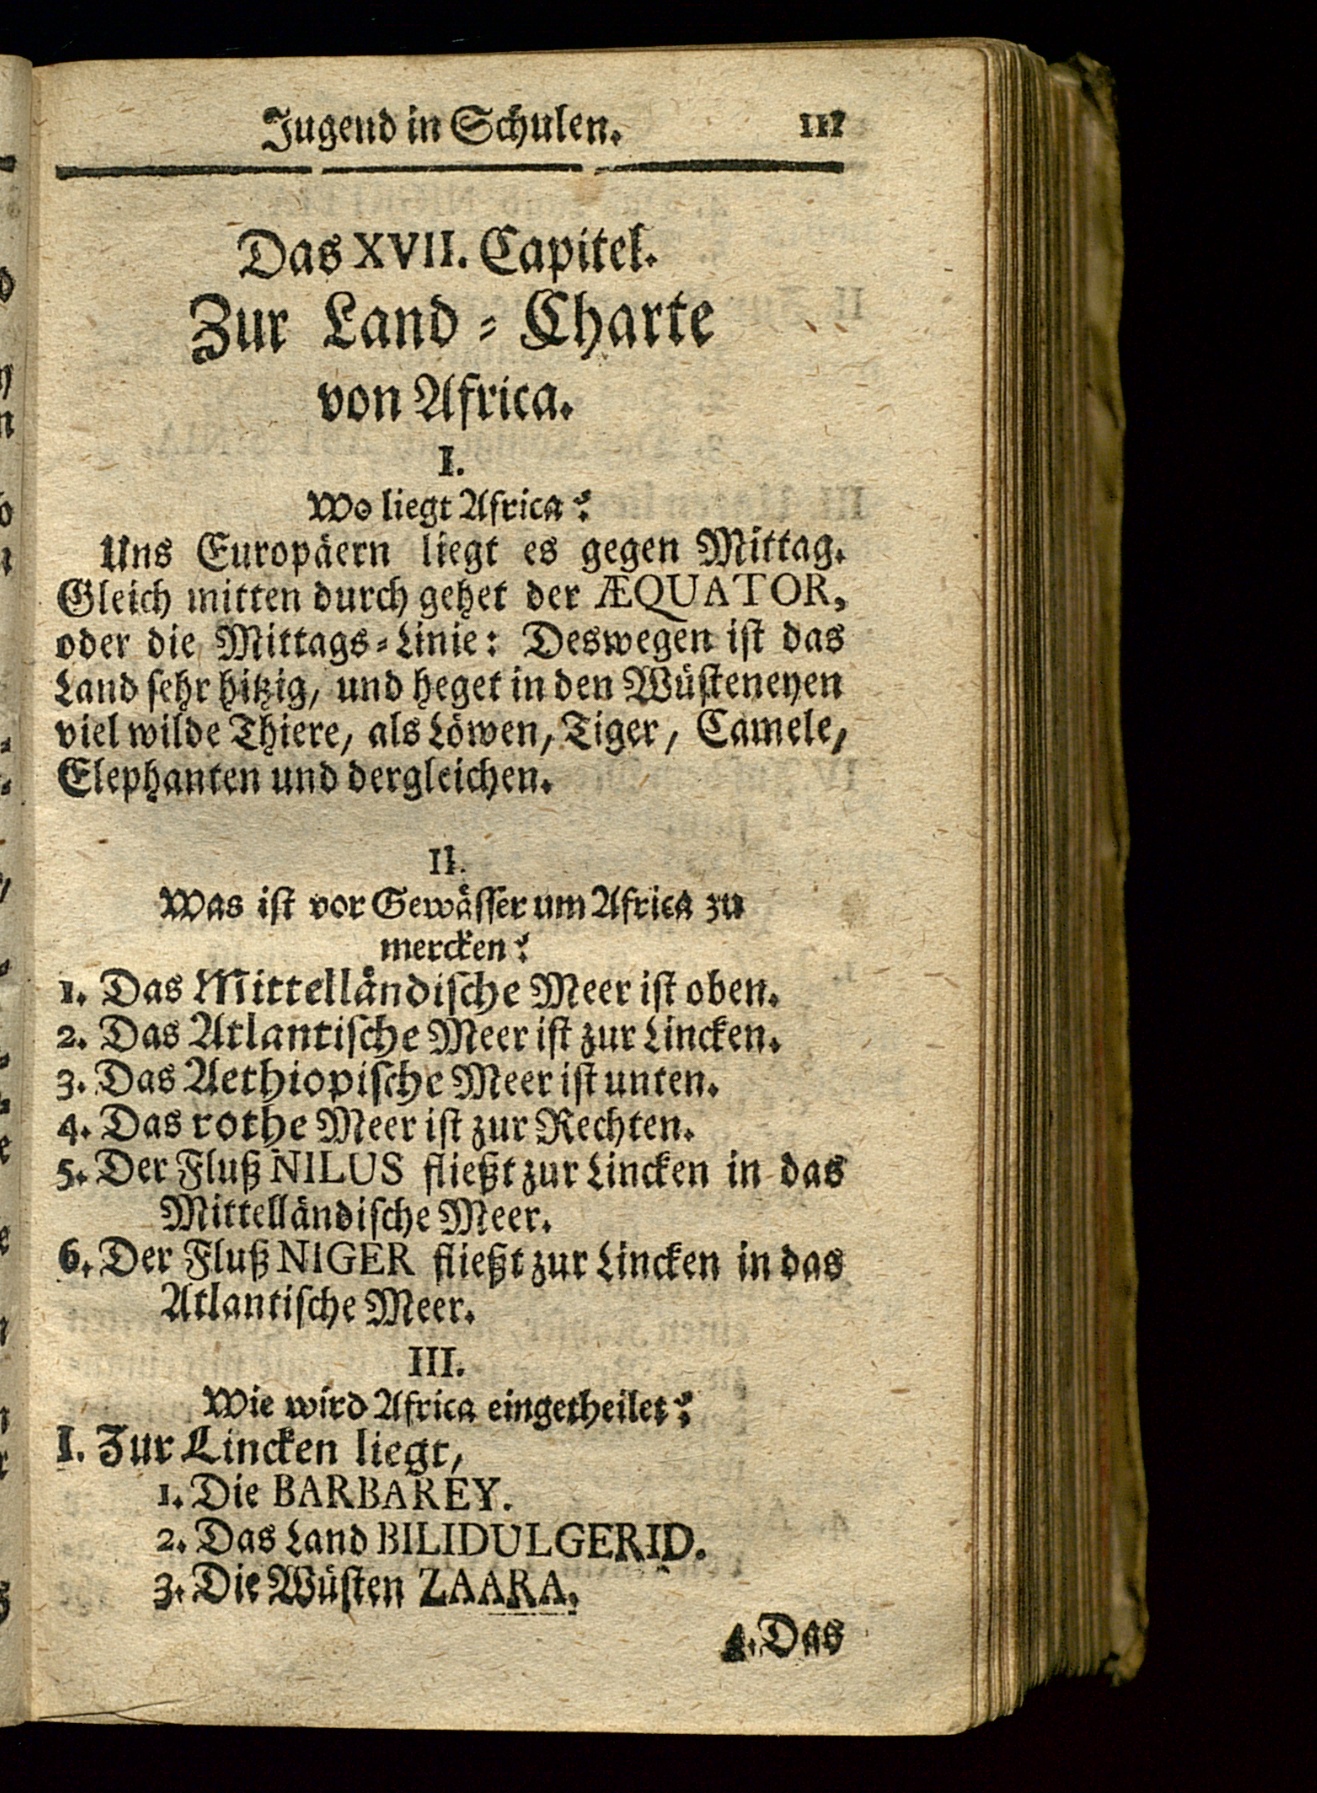 Jugend in Schulen. 111
Das XVII. Capitel.
Zur Land-Charte
von Africa.
I.
Wo liegt Africa?
Uns Europäern liegt es gegen Mittag.
Gleich mitten durch gehet der ÆQUATOR,
oder die Mittags-Linie: Deswegen ist das
Land sehr hitzig, und heget in den Wüsteneyen
viel wilde Thiere, als Löwen, Tiger, Camele,
Elephanten und dergleichen.
II.
Was ist vor Gewässer um Africa zu
mercken?
1. Das Mittelländische Meer ist oben.
2. Das Atlantische Meer ist zur Lincken.
3. Das Aethiopische Meer ist unten.
4. Das rothe Meer ist zur Rechten.
5. Der Fluß NILUS fließt zur Lincken in das
Mittelländische Meer.
6. Der Fluß NIGER fließt zur Lincken in das
Atlantische Meer.
III.
Wie wird Africa eingetheilet?
I. Zur Lincken liegt,
1. Die BARBAREY.
2. Das Land BILIDULGERID.
3. Die Wüsten ZAARA.
4. Das